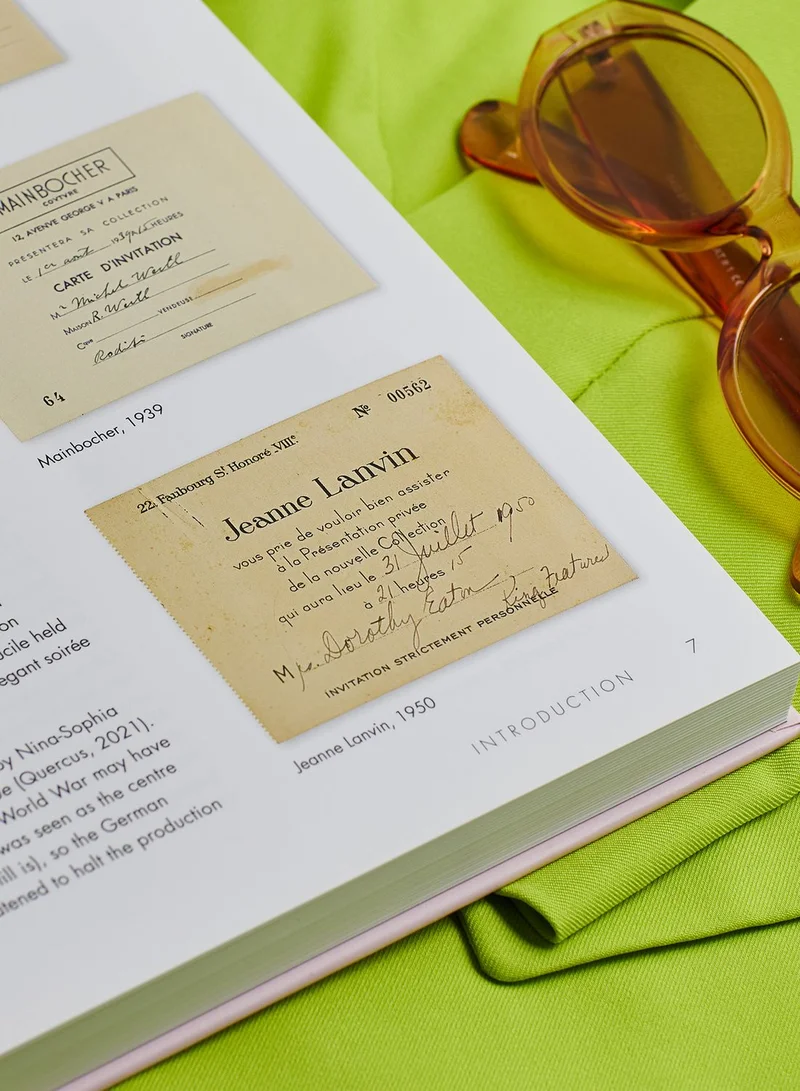 MAINBOCHER
COVTVRE
12 AVENVE GEORGE V A PARIS
PRÉSENTERA SA COLLECTION
LE 1er août 1939 HEURES
CARTE D'INVITATION
Mr Michel Wertl
MAISON R. Wertl
VENDEUSE
SIGNATURE
64
Mainbocher, 1939
Nº 00562
22, Faubourg St Honoré _VIIIe.
Jeanne Lanvin
vous prie de vouloir bien assister
à la Présentation privée
de la nouvelle Collection
qui aura lieu le 31 Juillet 1950
à 21 heures 15
Mrs. Dorothy Eaton King Features
INVITATION STRICTEMENT PERSONNELLE
Jeanne Lanvin, 1950
INTRODUCTION 7
on
ucile held
egant soirée
by Nina-Sophia
e (Quercus, 2021).
World War may have
was seen as the centre
ill is), so the German
atened to halt the production